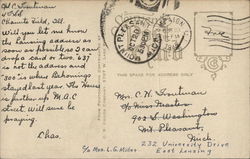 H.C. Troutman
Chanute Field, Ill.
Will you let me know
the Lansing address as
soon as possible so I can
drop a card or two. "637"
is not the address and
"300" is where Bohenings
stayed last year. The House
is further up. M.A.C
street. Will sure be
praying.
Chas.
MT PLEASANT
THIS SPACE FOR ADDRESS ONLY
Mrs. C. H. Troutman
c/o Miss Master
902 S. Washington
Mt. Pleasant,
Mich.
232 University Drive
East Lansing
c/o Mrs. L.G. Miller